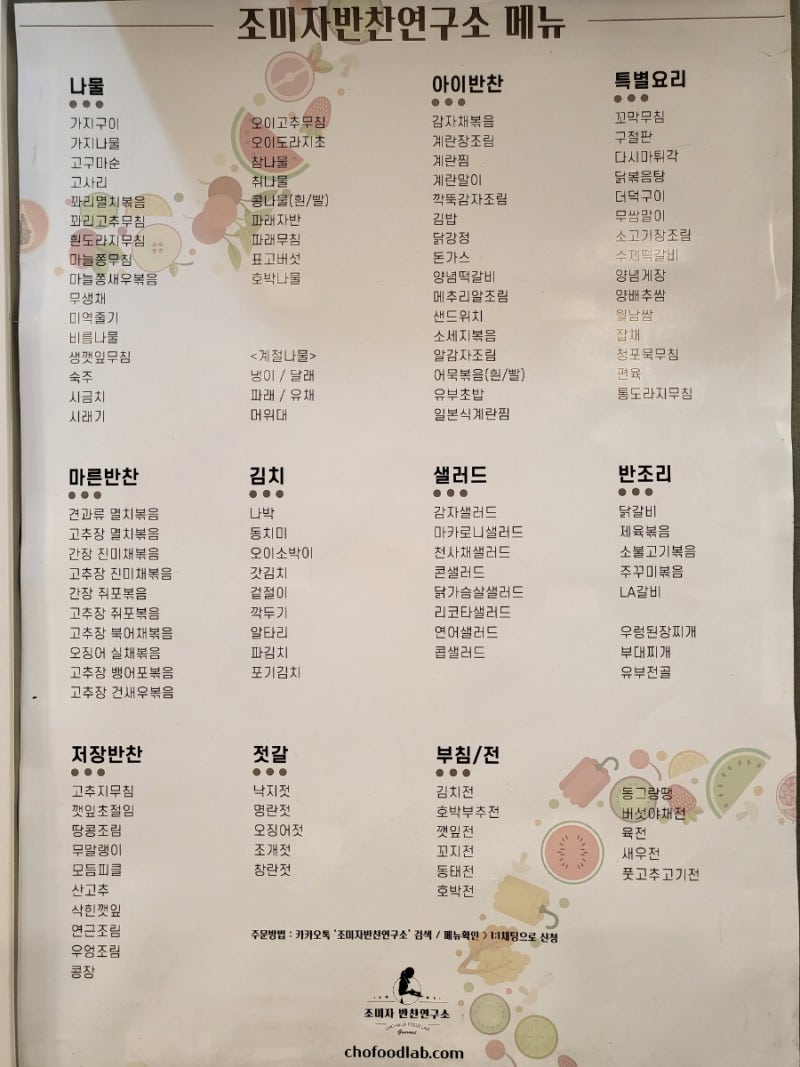 조미자반찬연구소 메뉴
나물
가지구이
가지나물
고구마순
고사리
꽈리멸치볶음
꽈리고추무침
흰도라지무침
마늘쫑무침
마늘쫑새우볶음
무생채
미역줄기
비름나물
생깻잎무침
숙주
시금치
시래기
오이고추무침
오이도라지초
참나물
취나물
콩나물(흰/빨)
파래자반
파래무침
표고버섯
호박나물
<계절나물>
냉이 / 달래
파래 / 유채
머위대
아이반찬
감자채볶음
계란장조림
계란찜
계란말이
깍뚝감자조림
김밥
닭강정
돈가스
양념떡갈비
메추리알조림
샌드위치
소세지볶음
알감자조림
어묵볶음(흰/빨)
유부초밥
일본식계란찜
특별요리
꼬막무침
구절판
다시마튀각
닭볶음탕
더덕구이
무쌈말이
소고기장조림
수제떡갈비
양념게장
양배추쌈
월남쌈
잡채
청포묵무침
편육
통도라지무침
마른반찬
견과류 멸치볶음
고추장 멸치볶음
간장 진미채볶음
고추장 진미채볶음
간장 쥐포볶음
고추장 쥐포볶음
고추장 북어채볶음
오징어 실채볶음
고추장 뱅어포볶음
고추장 건새우볶음
김치
나박
동치미
오이소박이
갓김치
겉절이
깍두기
알타리
파김치
포기김치
샐러드
감자샐러드
마카로니샐러드
천사채샐러드
콘샐러드
닭가슴살샐러드
리코타샐러드
연어샐러드
콥샐러드
반조리
닭갈비
제육볶음
소불고기볶음
주꾸미볶음
LA갈비
우렁된장찌개
부대찌개
유부전골
저장반찬
고추지무침
깻잎초절임
땅콩조림
무말랭이
모듬피클
산고추
삭힌깻잎
연근조림
우엉조림
콩장
젓갈
낙지젓
명란젓
오징어젓
조개젓
창란젓
부침/전
김치전
호박부추전
깻잎전
꼬지전
동태전
호박전
동그랑땡
버섯야채전
육전
새우전
풋고추고기전
주문방법 : 카카오톡 '조미자반찬연구소' 검색 / 메뉴확인 > 1:1채팅으로 신청
조미자 반찬연구소
CHO MI JA FOOD LAB
Gourmet
chofoodlab.com